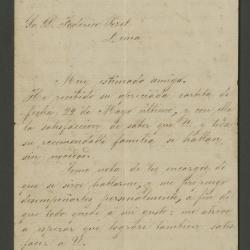 Sr. D. Federico Forst.
Lima
Muy estimado amigo.
He recibido su apreciada cartita de
fecha, 29 de Mayo último, y con ella
la satisfacción de saber que U. y toda
su recomendable familia se hallan
sin novedad.
Tomo nota de los encargos de
que se sirve hablarme, y me propongo
desempeñarlos personalmente, a fin de
que todo quede a mi gusto; me atrevo
a esperar que lograré tambien satis
facer a U.